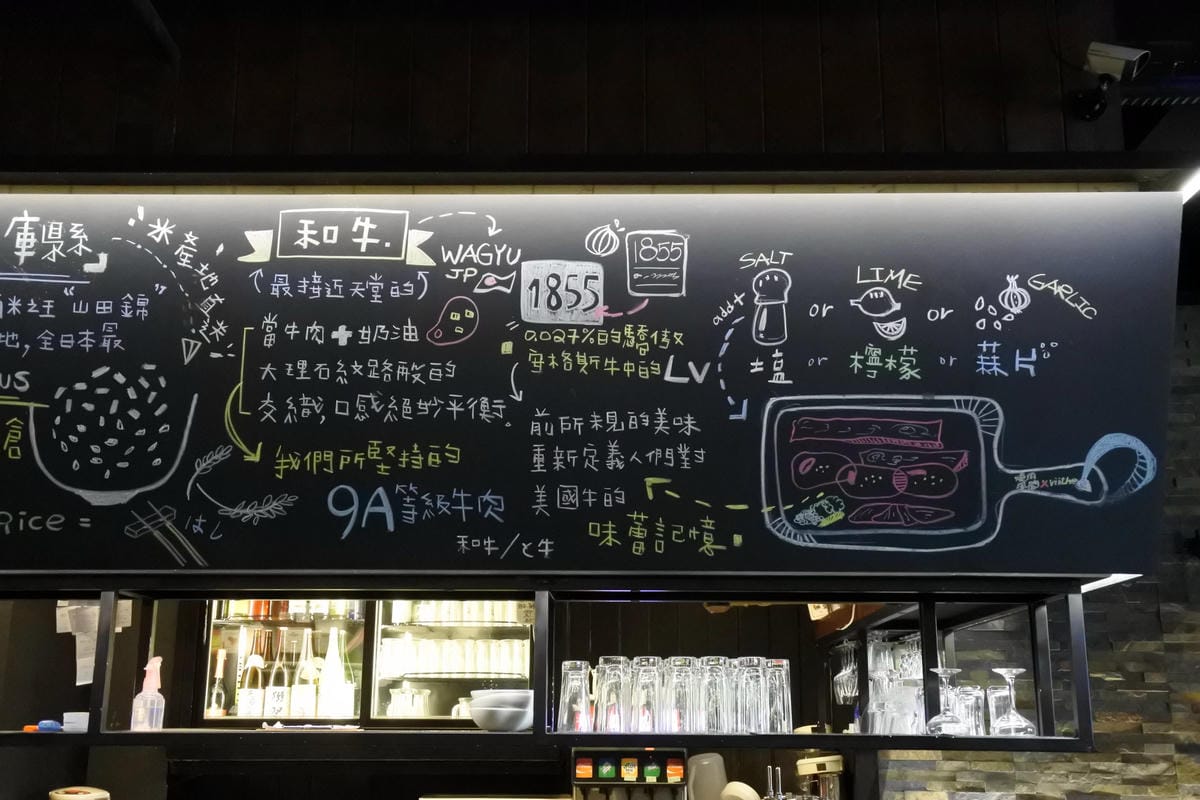 庫県系
米產地直米
米王"山田錦"
地,全日本最
us
倉
Rice =
はし
和牛.
WAGYU
JP
(最接近天堂的)
當牛肉+奶油
大理石紋路般的
交織,口感絕妙平衡.
我們所堅持的
9A等級牛肉
和牛/と牛
1855
1855
0.027%的驕傲
安格斯牛中的LV
前所未見的美味
重新定義人們對
美國牛的
味蕾記憶
add+
SALT or LIME or GARLIC
塩 or 檸檬 or 蒜片